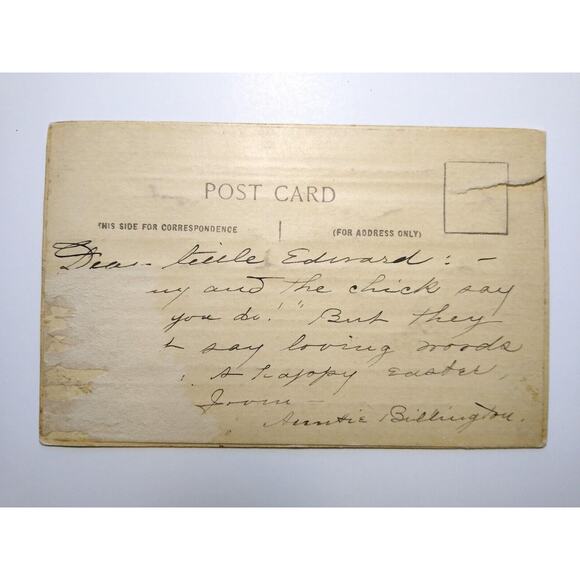 POST CARD
THIS SIDE FOR CORRESPONDENCE
(FOR ADDRESS ONLY)
Dear little Edward : -
ny and the chick say
you do!" But they
t say loving words
: A happy easter,
From -
Auntie Billington.